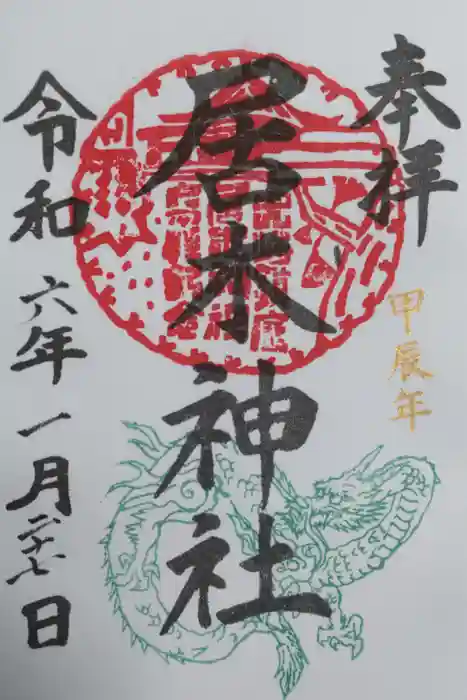 奉拝
甲辰年
居木神社
令和六年一月二十七日